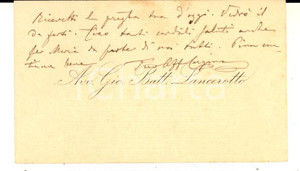 Ricevetti la preghia tua d'oggi. Vedrò il
da farsi. Ciao tanti cordiali saluti anche
per Maria da parte di noi tutti.
tuo Aff Cugino
Avv. Gio. Batt. Lancerotto